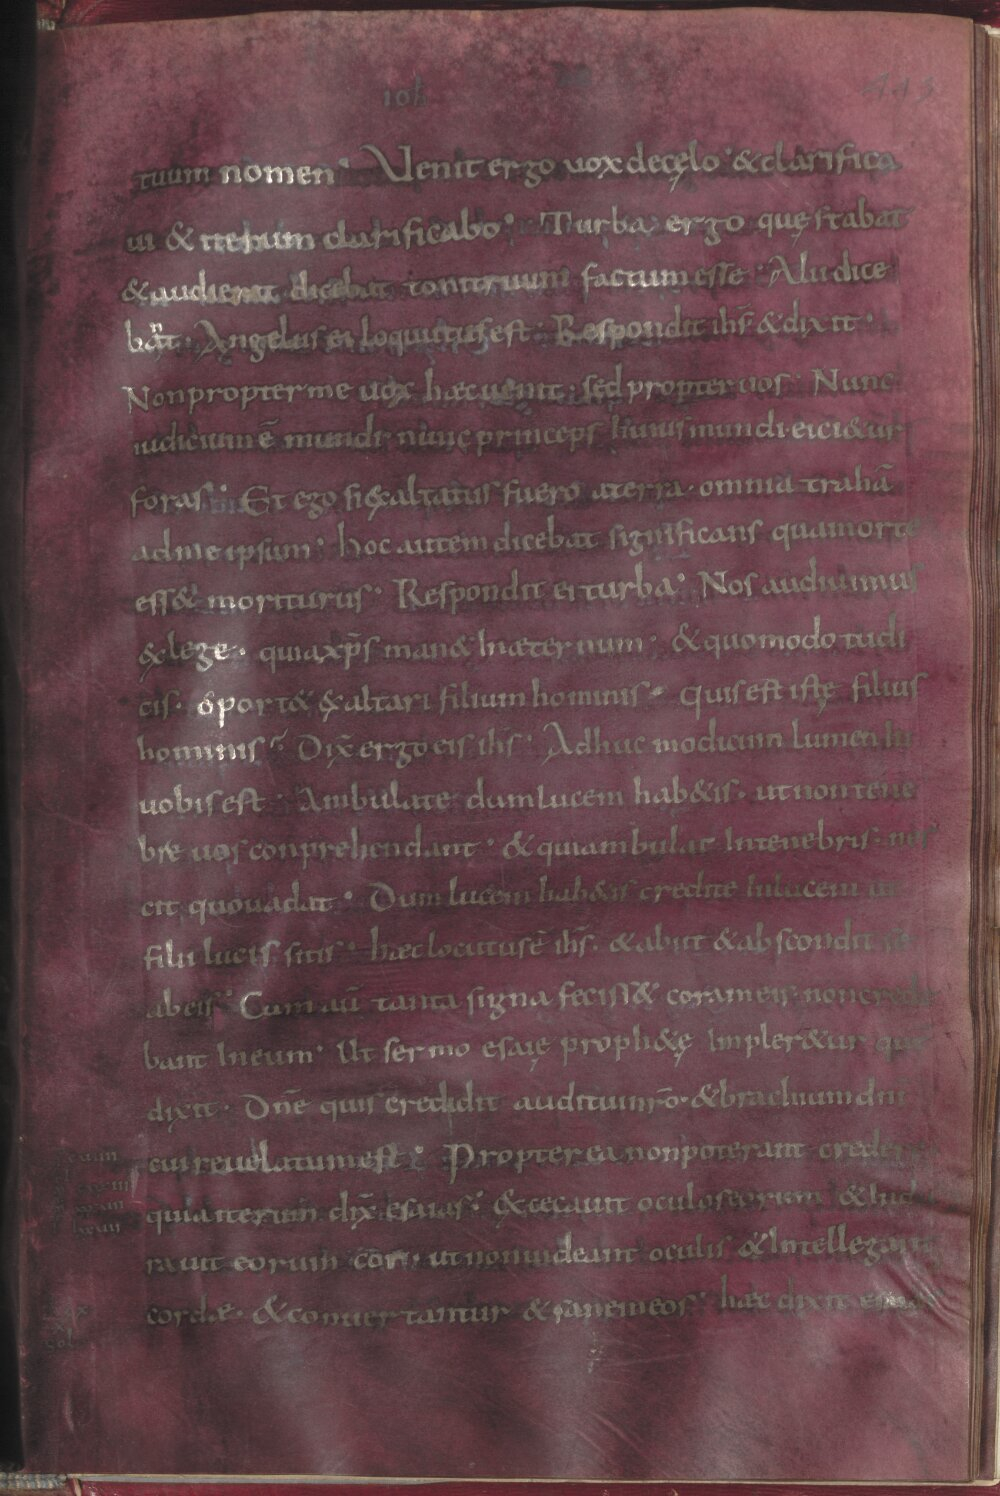 ioh 113
tuum nomen· Uenit ergo uox decęlo· & clarifica
ui & iterum clarificabo· Turba ergo quę stabat
& audierat dicebat tonitruum factum esse· Alii dice
bant· Angelus ei locutus est· Respondit ih̅s & dixit·
Non propter me uox hæc uenit· sed propter uos· Nunc
iudicium ē mundi nunc princeps huius mundi eici&ur
foras· Et ego si exaltatus fuero aterra· omnia trahā
ad me ipsum· hoc autem dicebat significans qua morte
ess& moriturus· Respondit ei turba· Nos audiuimus
& lege· quia xp̅s man& In æternum· & quomodo tu di
cis· oport& exaltari filium hominis· quis est iste filius
hominis· Dix̅ ergo eis ih̅s· Adhuc modicum lumen In
uobis est· Ambulate dum lucem hab&is· ut non tene
bre uos conprehendant· & qui ambulat In tenebris· nes
cit quo uadat· Dum lucem hab&is credite In lucem ut
filii lucis sitis· hæc locutus ē ih̅s· & abiit & abscondit se
ab eis· Cum aū tanta signa feciss& coram eis· non crede
bant In eum· Ut sermo esaię proph&ę Impler&ur quē
dixit· Dn̅e quis credidit auditui nr̅o· & brachium dn̅i
cui reuelatum est· Propterea non poterant credere
quia iterum dix̅ esaias· &cecauit oculos eorum & Indu
rauit eorum cor· ut non uideant oculis & Intellegant
corde· & conuertantur & sanem eos· hæc dixit esaias